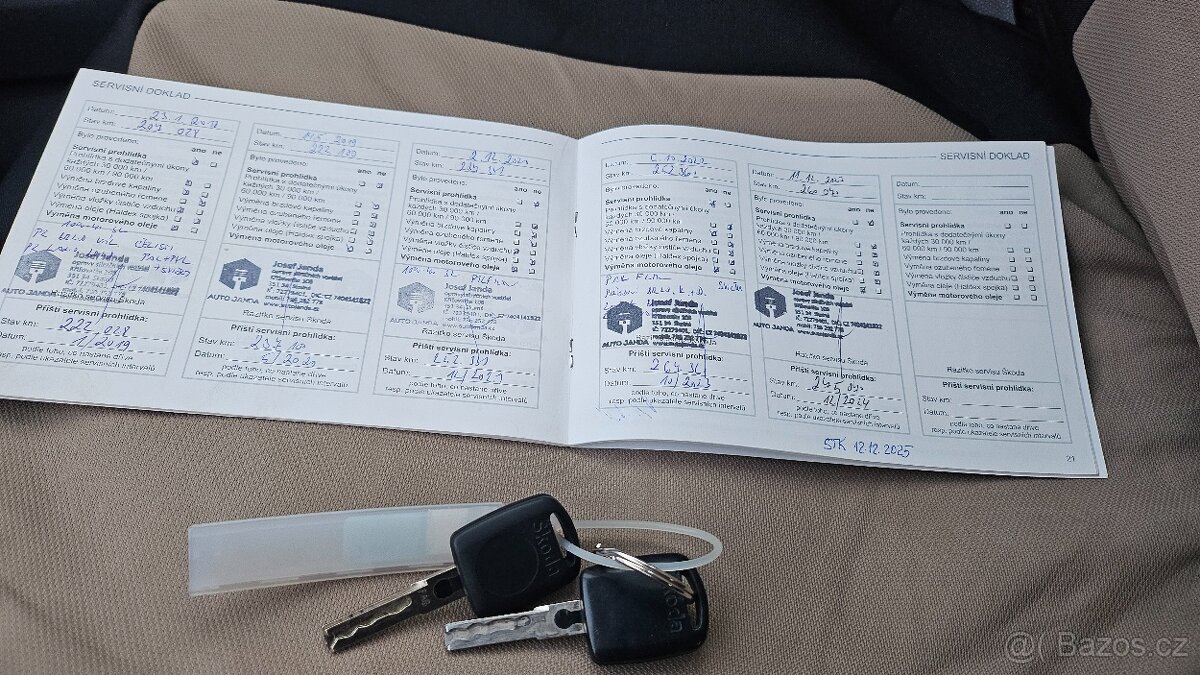 SERVISNÍ DOKLAD
Datum: 23.1.2018
Stav km: 207 028
Bylo provedeno: ano ne
Servisní prohlídka
Prohlídka s dodatečnými úkony
každých 30 000 km /
60 000 km / 90 000 km
Výměna brzdové kapaliny
Výměna ozubeného řemene
Výměna vložky čističe vzduchu
Výměna oleje (Haldex spojka)
Výměna motorového oleje
Josef Janda
AUTO JANDA
Razítko servisu Škoda
Příští servisní prohlídka:
Stav km: 222 028
Datum: 1/2019
podle toho, co nastane dříve
resp. podle ukazatele servisních intervalů
Datum: 2019
Stav km: 222 100
Bylo provedeno: ano ne
Servisní prohlídka
Prohlídka s dodatečnými úkony
každých 30 000 km /
60 000 km / 90 000 km
Výměna brzdové kapaliny
Výměna ozubeného řemene
Výměna vložky čističe vzduchu
Výměna oleje (Haldex spojka)
Výměna motorového oleje
Josef Janda
opravy silničních vozidel
Křišťanova 108
351 34 Skalná
AUTO JANDA
Razítko servisu Škoda
Příští servisní prohlídka:
Stav km: 237 10
Datum: 5/2020
podle toho, co nastane dříve
resp. podle ukazatele servisních intervalů
Datum: 2.12.2021
Stav km: 239 361
Bylo provedeno: ano ne
Servisní prohlídka
Prohlídka s dodatečnými úkony
každých 30 000 km /
60 000 km / 90 000 km
Výměna brzdové kapaliny
Výměna ozubeného řemene
Výměna vložky čističe vzduchu
Výměna oleje (Haldex spojka)
Výměna motorového oleje
Josef Janda
AUTO JANDA
Razítko servisu Škoda
Příští servisní prohlídka:
Datum: 12/2023
podle toho, co nastane dříve
resp. podle ukazatele servisních intervalů
SERVISNÍ DOKLAD
Datum: 10 2022
Stav km: 252 361
Bylo provedeno: ano ne
Servisní prohlídka
Prohlídka s dodatečnými úkony
každých 30 000 km /
60 000 km / 90 000 km
Výměna brzdové kapaliny
Výměna ozubeného řemene
Výměna vložky čističe vzduchu
Výměna oleje (Haldex spojka)
Výměna motorového oleje
Josef Janda
AUTO JANDA
Razítko servisu Škoda
Příští servisní prohlídka:
Stav km: 267 361
Datum: 10/2023
podle toho, co nastane dříve
resp. podle ukazatele servisních intervalů
Datum: 11.12.2023
Stav km:
Bylo provedeno: ano ne
Servisní prohlídka
Prohlídka s dodatečnými úkony
každých 30 000 km /
60 000 km / 90 000 km
Výměna brzdové kapaliny
Výměna ozubeného řemene
Výměna vložky čističe vzduchu
Výměna oleje (Haldex spojka)
Výměna motorového oleje
Josef Janda
AUTO JANDA
Razítko servisu Škoda
Příští servisní prohlídka:
Stav km:
Datum: 12/2024
podle toho, co nastane dříve
resp. podle ukazatele servisních intervalů
STK 12.12.2025
Datum:
Stav km:
Bylo provedeno: ano ne
Servisní prohlídka
Prohlídka s dodatečnými úkony
každých 30 000 km /
60 000 km / 90 000 km
Výměna brzdové kapaliny
Výměna ozubeného řemene
Výměna vložky čističe vzduchu
Výměna oleje (Haldex spojka)
Výměna motorového oleje
Razítko servisu Škoda
Příští servisní prohlídka:
Stav km:
Datum:
podle toho, co nastane dříve
resp. podle ukazatele servisních intervalů
21
Škoda
Škoda
Bazos.cz